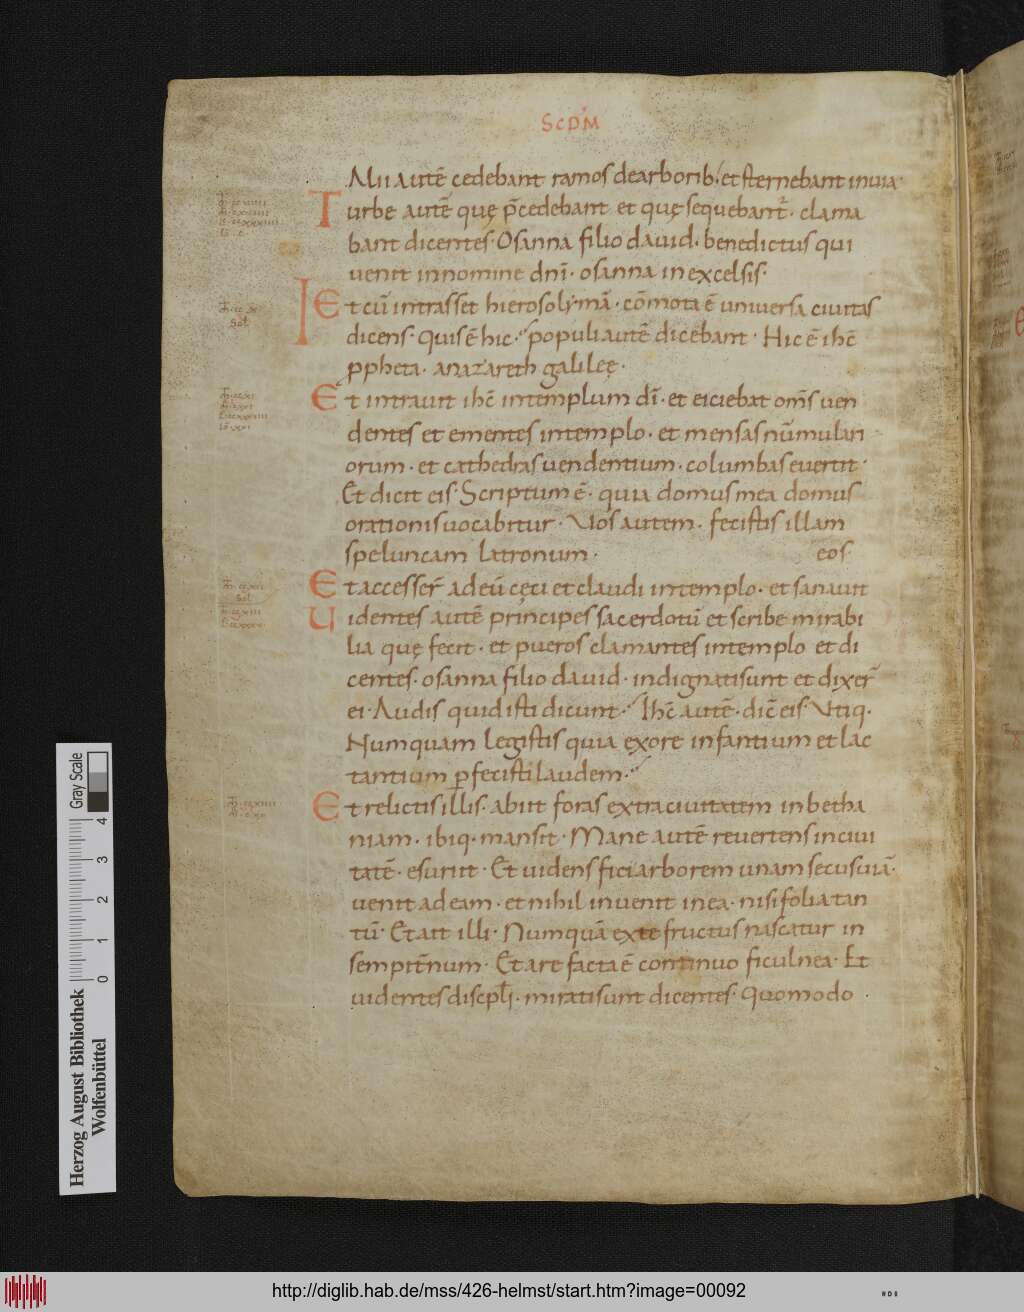 SCDM̄
Alii autē cedebant ramos dearborib; et sternebant inuia
Turbe autē quę p̄cedebant et quę sequebant̄ · clama
bant dicentes · Osanna filio dauid · benedictus qui
uenit innomine dn̄i · osanna inexcelsis ·
Et cū intrasset hierosolymā · cōmota ē uniuersa ciuitas
dicens · Quis ē hic · populi autē dicebant · Hic ē ih̄c
ppheta · anazareth galileę ·
Et intrauit ih̄c intemplum dī · et eiciebat om̄s uen
dentes et ementes intemplo · et mensas nūmulari
orum · et cathedras uendentium · columbas euertit ·
Et dicit eis · Scriptum ē · quia domus mea domus
orationis uocabitur · Uos autem · fecistis illam
speluncam latronum · eos
Et accesser̄ ad eū cęci et claudi intemplo · et sanauit
Uidentes autē principes sacerdotū et scribe mirabi
lia quę fecit · et pueros clamantes intemplo et di
centes · osanna filio dauid · indignati sunt et dixer̄
ei · Audis quid isti dicunt · Ih̄c autē · dic̄ eis · Utiq ·
Numquam legistis quia exore infantium et lac
tantium pfecisti laudem ·
Et relictis illis · abiit foras extra ciuitatem inbetha
niam · ibiq · mansit · Mane autē reuertens inciui
tatē · esuriit · Et uidens fici arborem unam secus uiā ·
uenit ad eam · et nihil inuenit inea · nisi folia tan
tū · Et ait illi · Numquā exte fructus nascatur in
sempit̄num · Et arefacta ē continuo ficulnea · Et
uidentes discipl̄i · mirati sunt dicentes · Quomodo
Herzog August Bibliothek
Wolfenbüttel
0 1 2 3 4
Gray Scale
http://diglib.hab.de/mss/426-helmst/start.htm?image=00092